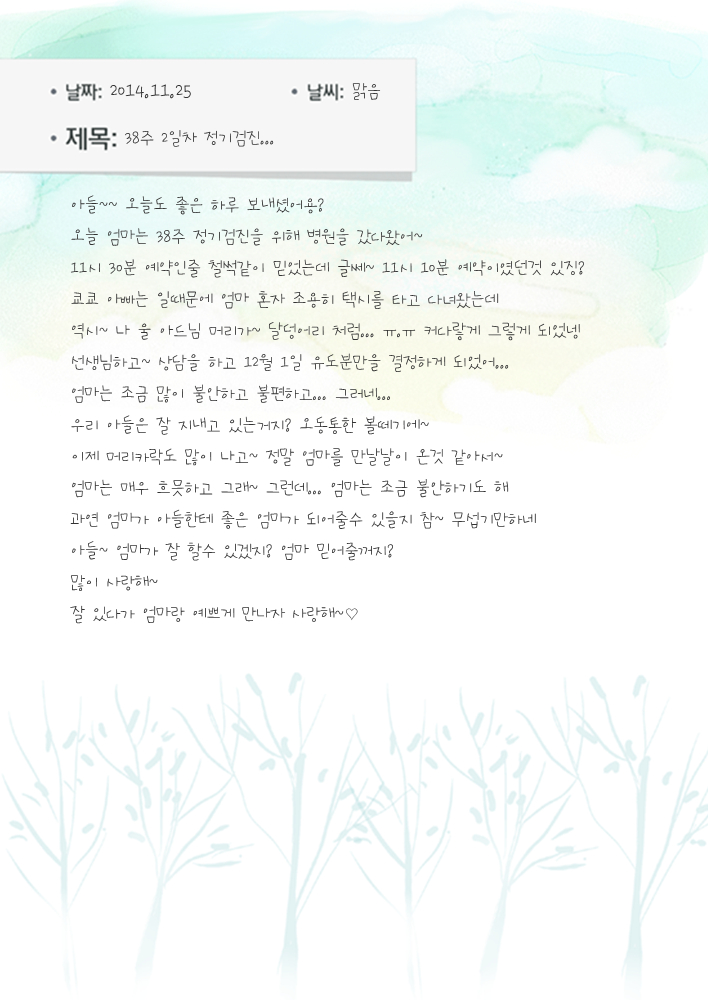 • 날짜: 2014.11.25 • 날씨: 맑음
• 제목: 38주 2일차 정기검진...
아들~~ 오늘도 좋은 하루 보내셨어용?
오늘 엄마는 38주 정기검진을 위해 병원을 갔다왔어~
11시 30분 예약인줄 철썩같이 믿었는데 글쎄~ 11시 10분 예약이였던것 있징?
쿄쿄 아빠는 일때문에 엄마 혼자 조용히 택시를 타고 다녀왔는데
역시~ 나 울 아드님 머리가~ 달덩어리 처럼... ㅠ.ㅠ 커다랗게 그렇게 되었넹!
선생님하고~ 상담을 하고 12월 1일 유도분만을 결정하게 되었어...
엄마는 조금 많이 불안하고 불편하고... 그러네...
우리 아들은 잘 지내고 있는거지? 오동통한 볼떼기에~
이제 머리카락도 많이 나고~ 정말 엄마를 만날날이 온것 같아서~
엄마는 매우 흐믓하고 그래~ 그런데... 엄마는 조금 불안하기도 해
과연 엄마가 아들한테 좋은 엄마가 되어줄수 있을지 참~ 무섭기만하네
아들~ 엄마가 잘 할수 있겠지? 엄마 믿어줄꺼지?
많이 사랑해~
잘 있다가 엄마랑 예쁘게 만나자 사랑해~♡